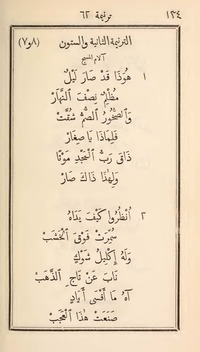 ١٣٤ ترنيمة ٦٢
الترنيمة الثانية والستون (٨و٧)
آلام المسيح
١ هُوَذَا قَدْ صَارَ لَيْلٌ
مُظْلِمٌ نِصْفَ ٱلنَّهَارْ
وَٱلصُّخُورُ ٱلصُّمُّ شُقَّتْ
فَلِمَاذَا يَا صِغَارْ
ذَاقَ رَبُّ ٱلْمَجْدِ مَوْتًا
وَلِهٰذَا ذَاكَ صَارْ
٢ اُنْظُرُوا كَيْفَ يَدَاهُ
سُمِّرَتْ فَوْقَ ٱلْخَشَبْ
وَلَهُ إِكْلِيلُ شَوْكٍ
نَابَ عَنْ تَاجِ ٱلذَّهَبْ
آهُ مَا أَقْسَى أَيَادٍ
صَنَعَتْ هٰذَا ٱلْعَجَبْ